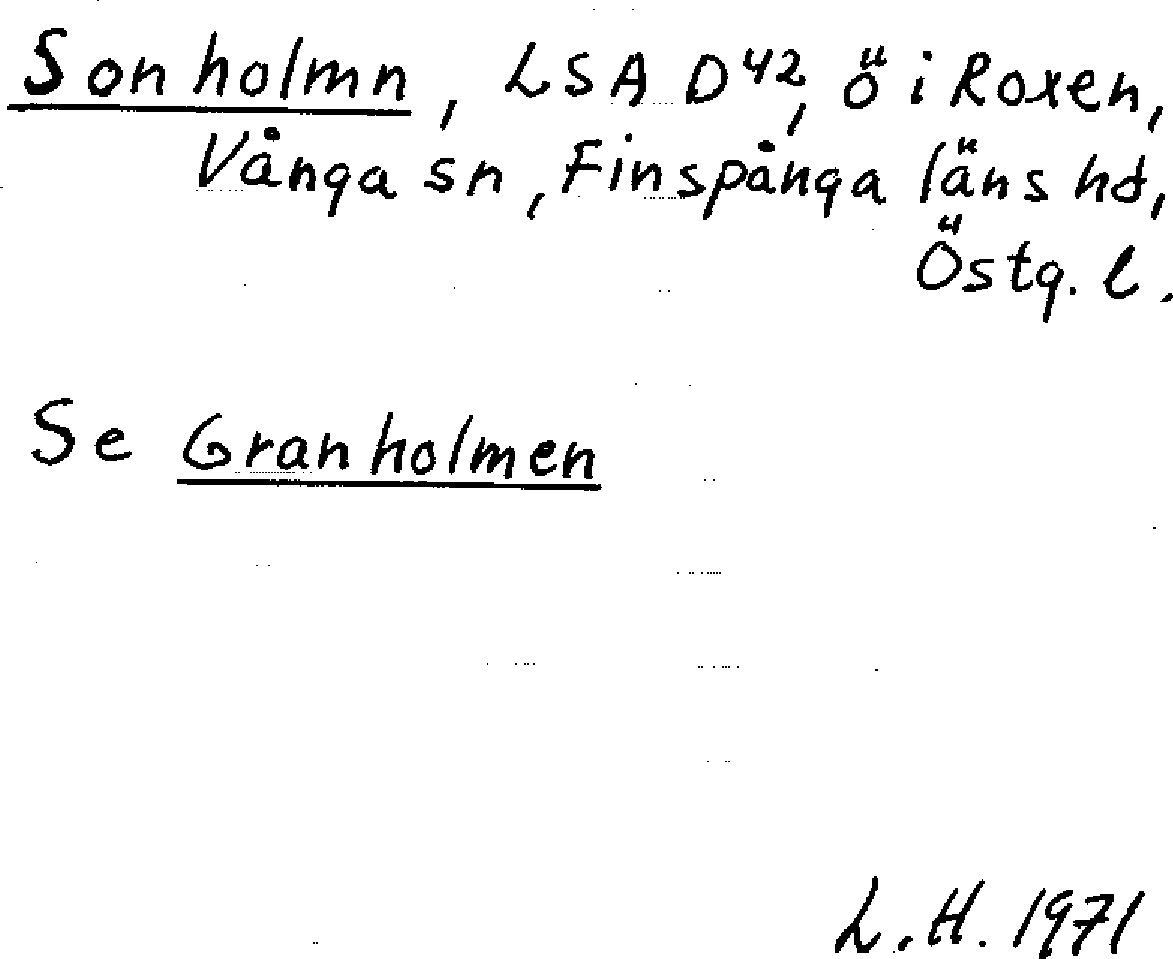 Sonholmn, LSA D42, ö i Roxen,
Vånga sn, Finspånga läns hd,
Östg. l.
Se Granholmen
L.H. 1971